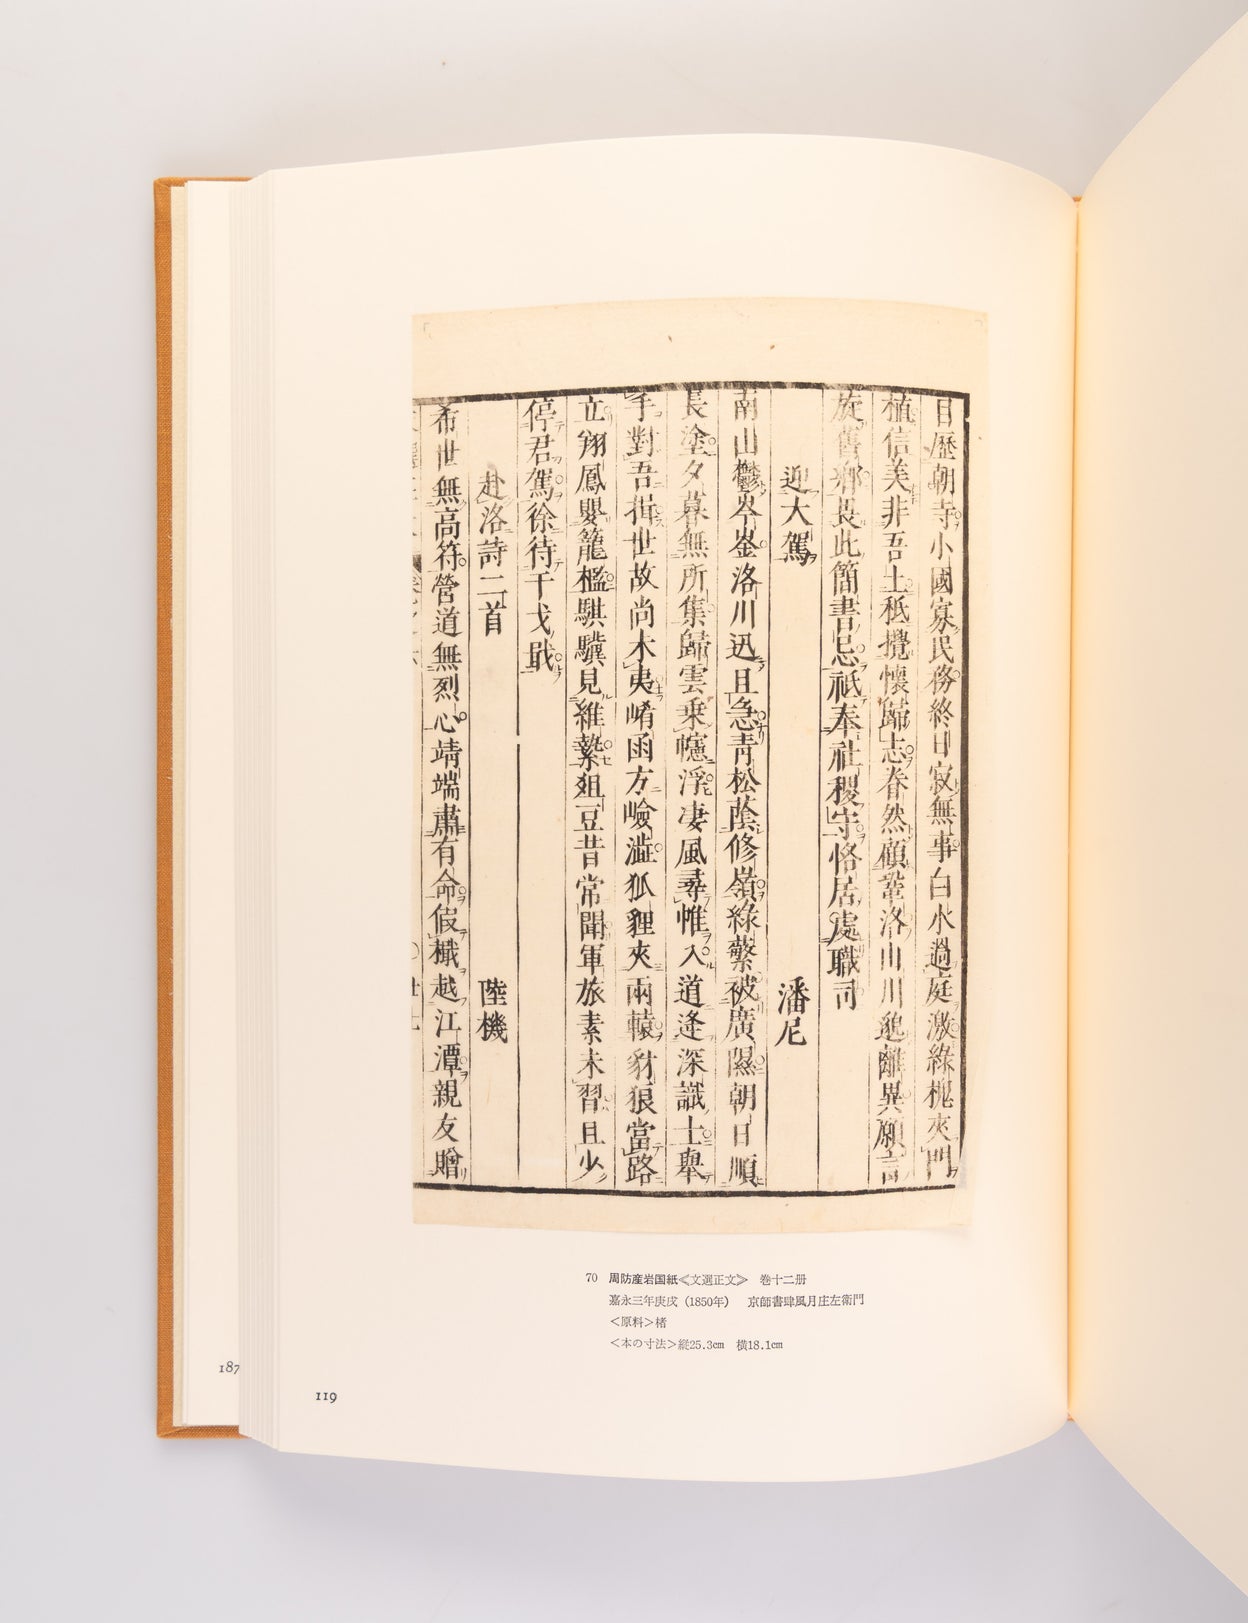 日歷朝寺小國寡民務終日寂無事白水過庭激綠槐夾門
植信美非吾土秖攪懷歸志眷然顧鞏洛山川邈離異願言
旋舊鄉畏此簡書忌祇奉社稷守恪居處職司
迎大駕 潘尼
南山鬱岑崟洛川迅且急青松蔭修嶺綠蘩被廣隰朝日順
長塗夕暮無所集歸雲乗幰浮凄風尋帷入道逢深識士舉
手對吾揖世故尚未夷崤函方嶮澁狐貍夾兩轅豺狼當路
立翔鳳嬰籠檻騏驥見維縶俎豆昔常聞軍旅素未習且少
停君駕徐待干戈戢
赴洛詩二首 陸機
希世無高符營道無烈心靖端肅有命假檝越江潭親友贈
70 周防産岩国紙≪文選正文≫ 巻十二册
嘉永三年庚戌（1850年） 京師書肆風月庄左衛門
＜原料＞楮
＜本の寸法＞縦25.3cm 横18.1cm
187
119